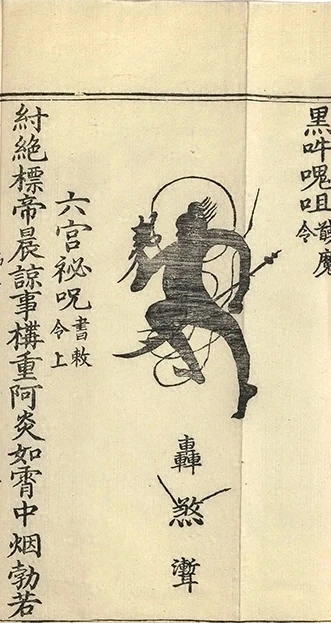 黑吽咀魔
令
轟煞聻
六宮祕呪書敕
令上
紂絶標帝晨諒事構重阿炎如霄中烟勃若